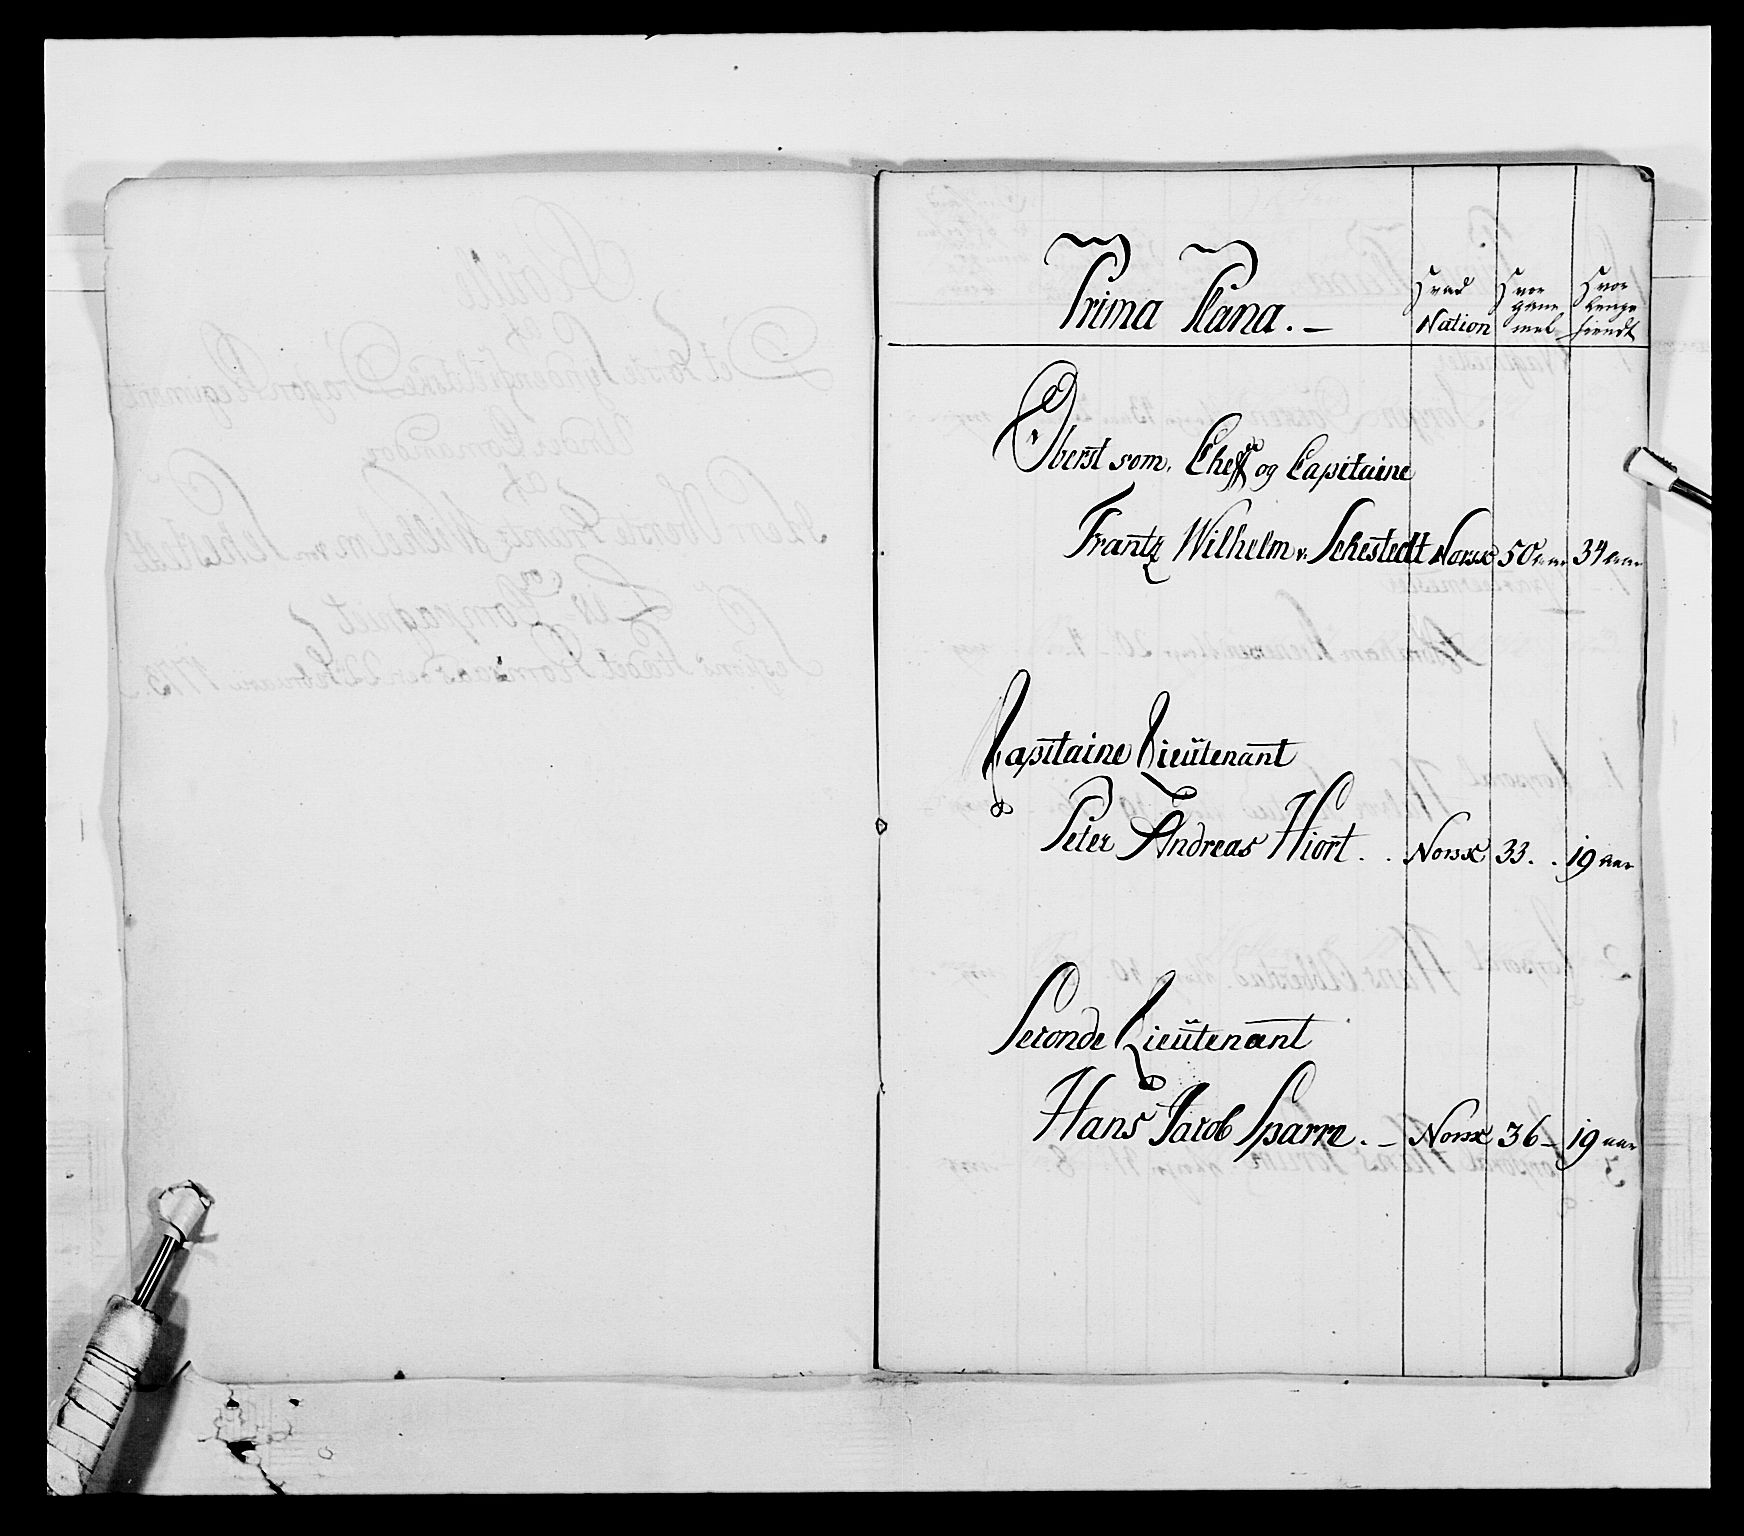 Prima Plana. —
Hvad Nation
Hvor gammel
Hvor lenge tiendt
Oberst som Cheff og Capitaine
Frantz Wilhelm v. Sehestedt Norsk 50 aar 34 aar
Capitaine Lieütenant
Peter Andreas Hiort . . Norsk 33 . . 19 aar
Seconde Lieütenant
Hans Jacob Sparre. — Norsk 36 — 19 aar